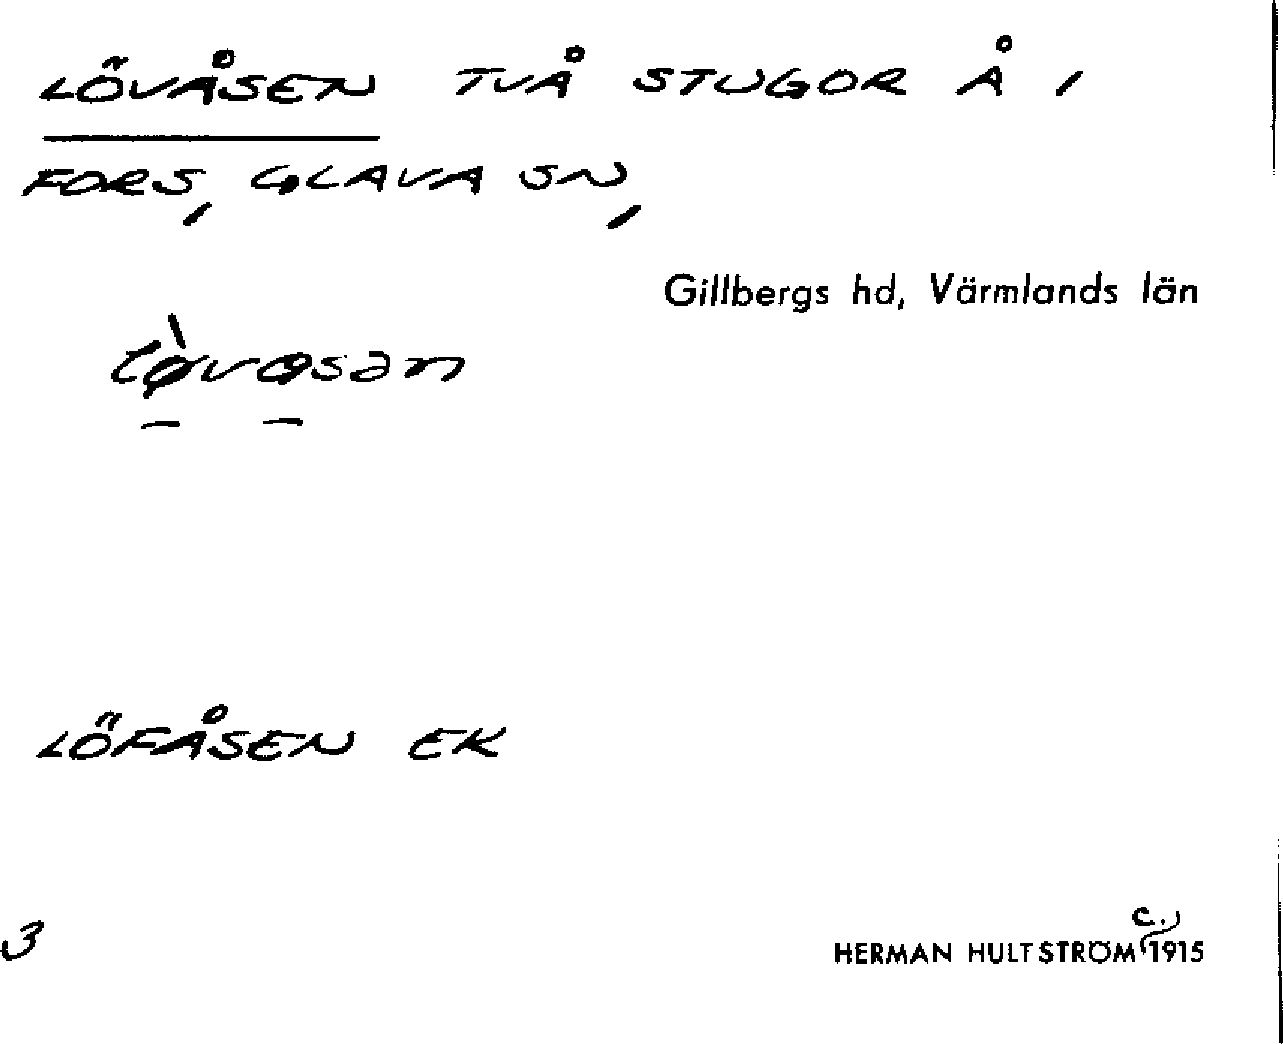 LÖVÅSEN TVÅ STUGOR Å I
FORS, GLAVA SN,
Gillbergs hd, Värmlands län
LÖFÅSEN EK
3
c.
HERMAN HULTSTRÖM 1915